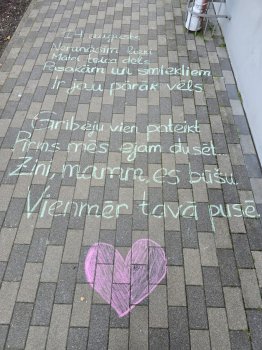 24 augusts
Nerunāsim
Mātei teica dēls
Pasakām un smiekliem
Ir jau pārāk vēls
Gribēju vien pateikt
Pirms mēs ejam dusēt...
Zini, mamm, es būšu
Vienmēr tavā pusē.